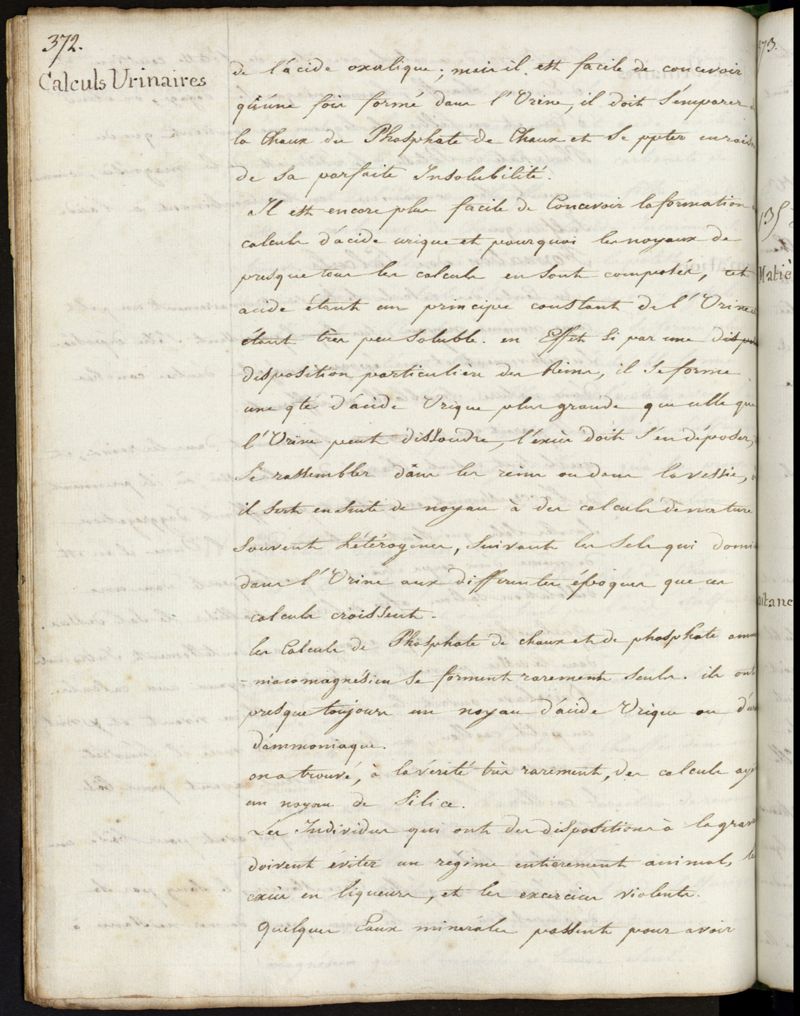 372.
Calculs Urinaires
de l'acide oxalique; mais il est facile de concevoir
qu'une fois formé dans l'Urine, il doit s'emparer
la Chaux du Phosphate de Chaux et se ppter en rais
de sa parfaite Insolubilité.
Il est encore plus facile de Concevoir la formation
calculs d'acide urique et pourquoi les noyaux de
presque tous les calculs en sont composés, cet
acide étant un principe constant de l'Urine
étant tres peu soluble. en Effet si par une dispo
disposition particulière des Reins, il se forme
une qté d'acide Urique plus grande que celle que
l'Urine peut dissoudre, l'excès doit s'en déposer,
se rassembler dans les reins ou dans la vessie,
il sert ensuite de noyau à des calculs de nature
souvent hétérogènes, suivant les Sels qui domi
dans l'Urine aux differentes époques que ces
calculs croissent.
les Calculs de Phosphate de chaux et de phosphate am
-niacomagnésien se forment rarement seuls. ils ont
presque toujours un noyau d'acide Urique ou d'u
d'ammoniaque.
on a trouvé, à la vérité très rarement, des calculs ay
un noyau de Silice.
Les Individus qui ont des dispositions à la grav
doivent éviter un régime entierement animal, le
excès en liqueurs, et les exercices violents.
Quelques Eaux minerales passent pour avoir
73.
135
Matiè